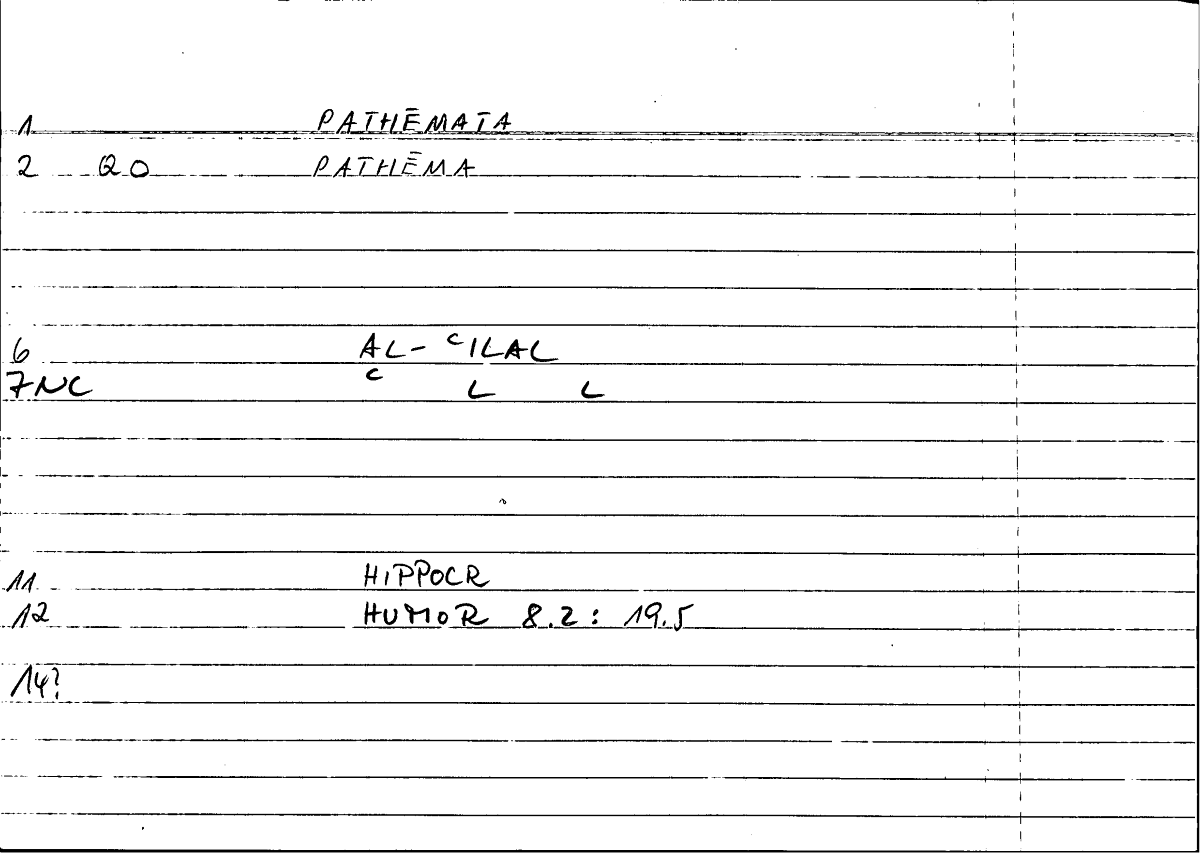 1 PATHĒMATA
2 QO PATHĒMA
6 AL- ᶜILAL
7NC ᶜ L L
11 HIPPOCR
12 HUMOR 8.2: 19.5
14?